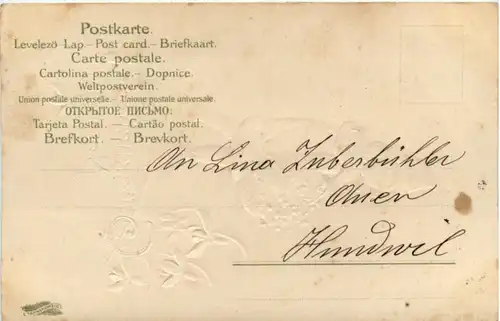 Postkarte.
Levelező-Lap.– Post card.– Briefkaart.
Carte postale.
Cartolina postale.– Dopnice.
Weltpostverein.
Union postale universelle.– Unione postale universale.
ОТКРЫТОЕ ПИСЬМО:
Tarjeta Postal. — Cartão postal.
Brefkort. — Brevkort.
An Lina Zuberbühler
Hundwil